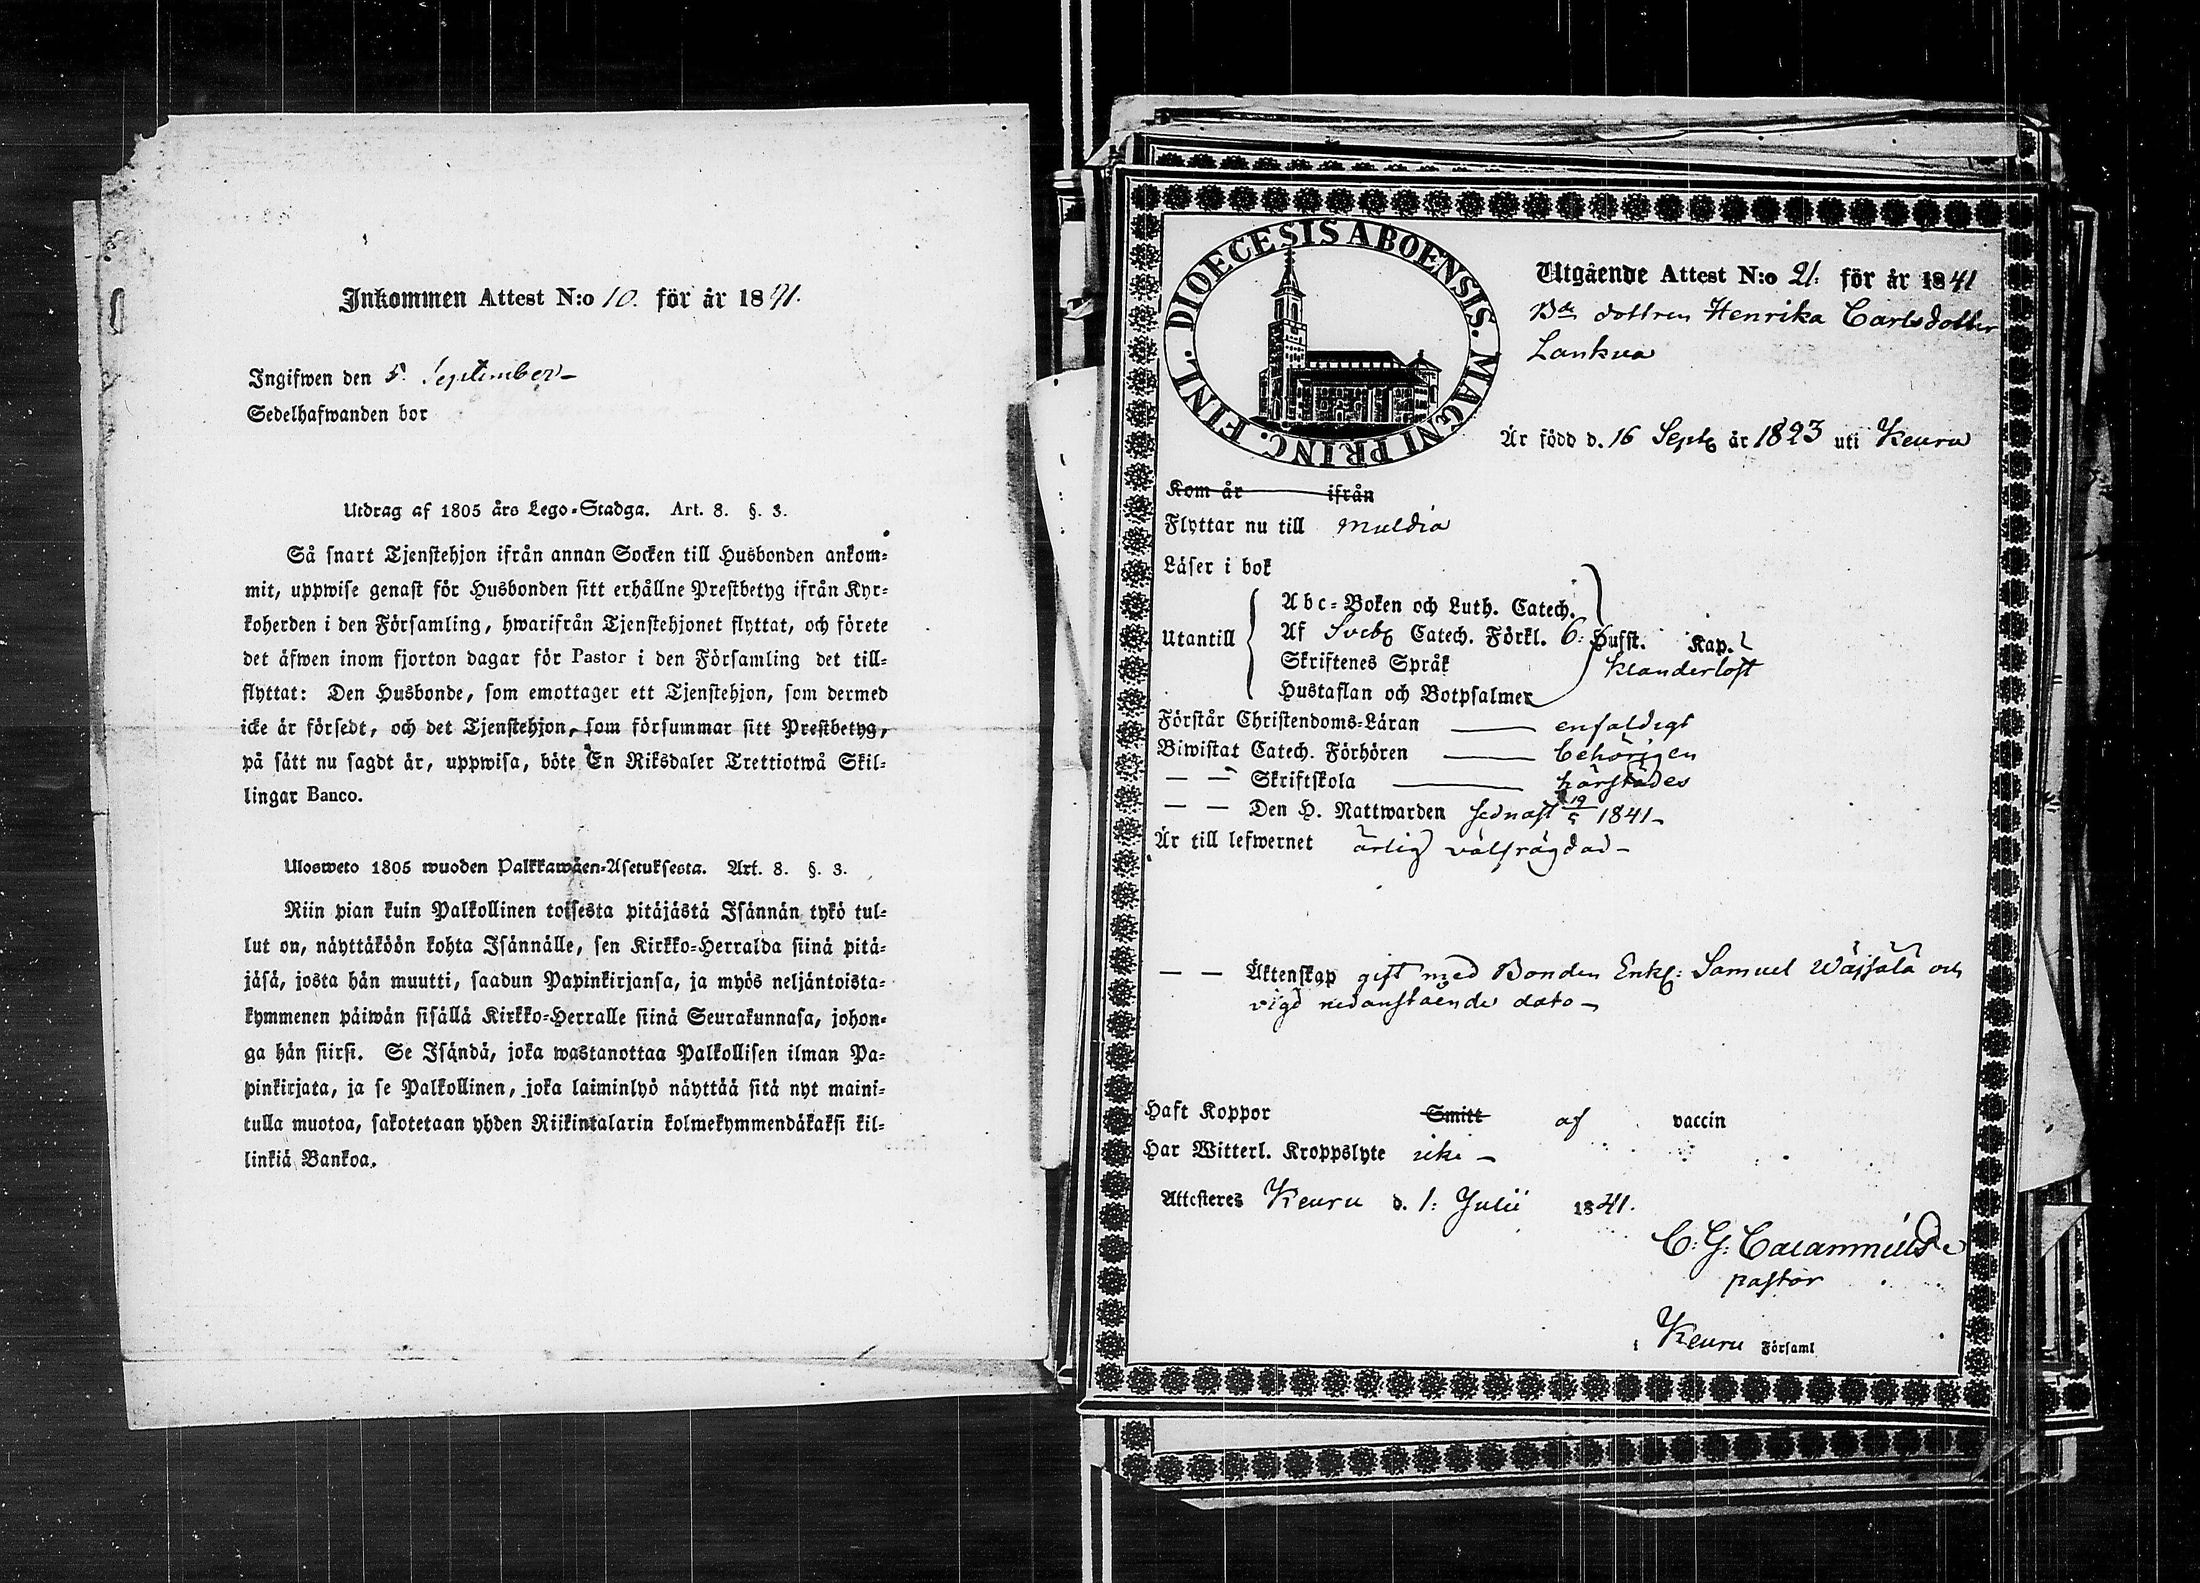 Inkommen Attest N:o 10. för år 1841.
Ingifwen den 5. September
Sedelhafwanden bor
Utdrag af 1805 års Lego-Stadga. Art. 8. §. 3.
Så snart Tjenstehjon ifrån annan Socken till Husbonden ankom-
mit, uppwise genast för Husbonden sitt erhållne Prestbetyg ifrån Kyr-
koherden i den Församling, hwarifrån Tjenstehjonet flyttat, och förete
det äfwen inom fjorton dagar för Pastor i den Församling det till-
flyttat: Den Husbonde, som emottager ett Tjenstehjon, som dermed
icke är försedt, och det Tjenstehjon, som försummar sitt Prestbetyg,
på sätt nu sagdt är, uppwisa, böte En Riksdaler Trettiotwå Skil-
lingar Banco.
Ulosweto 1805 wuoden Palkkawäen-Asetuksesta. Art. 8. §. 3.
Niin pian kuin Palkollinen toisesta pitäjästä Isännän tykö tul-
lut on, näyttäköön kohta Isännälle, sen Kirkko-Herralda siinä pitä-
jäsä, josta hän muutti, saadun Papinkirjansa, ja myös neljäntoista-
kymmenen päiwän sisällä Kirkko-Herralle siinä Seurakunnasa, johon-
ga hän siirsi. Se Isändä, joka wastanottaa Palkollisen ilman Pa-
pinkirjata, ja se Palkollinen, joka laiminlyö näyttää sitä nyt maini-
tulla muotoa, sakotetaan yhden Riikintalarin kolmekymmendäkaksi kil-
linkiä Bankoa.
DIOECESIS ABOENSIS. MAGNI PRINC. FINL.
Utgående Attest N:o 21. för år 1841
dottren Henrika Carlsdotter
Lankua
Är född d. 16 Sept år 1823 uti Keuru
Kom år ifrån
Flyttar nu till Muldia
Läser i bok
Abc-Boken och Luth. Catech.
Utantill Af Sveb Catech. Förkl. 6: Hufst. Kap.
Skriftenes Språk klanderlöst
Hustaflan och Botpsalmer
Förstår Christendoms-Läran enfaldigt
Biwistat Catech. Förhören behörigen
— — Skriftskola härstädes
— — Den H. Nattwarden sednast 19/5 1841
Är till lefwernet ärlig välfrägdad
— — Äktenskap gift med Bonden Enkl: Samuel Wäjsälä och
vigd nedanstående dato
Haft Koppor Smitt af vaccin
Har Witterl. Kroppslyte icke
Attesteres Keuru d. 1: Julii 1841.
C: G: Calamnius
pastor
i Keuru Församl